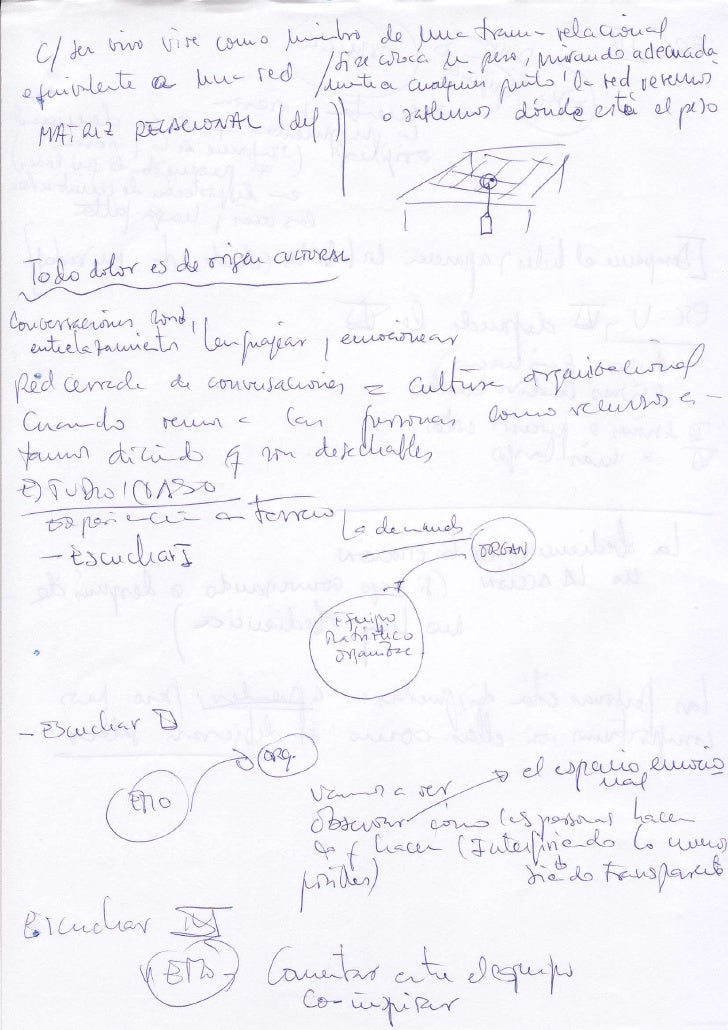 C/ ser vivo vive como miembro de una trama relacional
equivalente a una red / Si se coloca un peso, mirando adecuada
mente a cualquier punto d la red veremos
MATRIZ RELACIONAL (def) o sabremos dónde está el peso
Todo dolor es de origen CULTURAL
Conversaciones
entrelazamiento lenguajear y emocionear
Red cerrada de conversaciones = cultura organizacional
Cuando vemos a las personas como recursos es-
tamos diciendo q son desechables
ESTUDIO / CASO
Experiencia en terreno
La demanda
- Escuchar I
ORGAN
Equipo
Matríztico
- Escuchar II
ORG.
EMO
el espacio emocio
nal
Vamos a ver
observar cómo las personas hacen
lo q hacen (Interfiriendo lo menos
posible) siendo transparente
Escuchar III
EMO
Comentar entre el equipo
co-inspirar